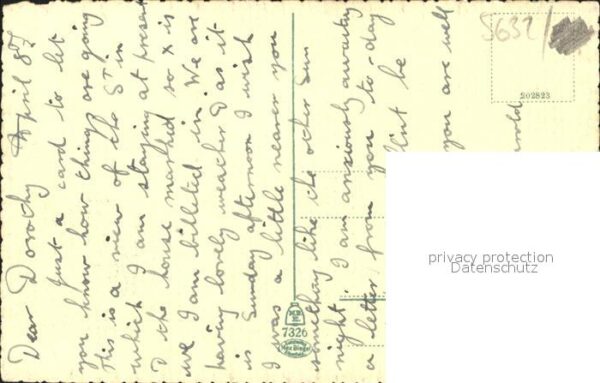 Dear Dorothy April 8th
Just a card to let
you know how things are going
This is a view of the St in
which I am staying at present
& the house marked so X is
we I am billeted in. We are
having lovely weather & as it
is Sunday afternoon I wish
I was a little nearer you
something like the other Sun
night. I am anxiously awaiting
a letter from you to-day
be
you are well
5632/
202823
7326
privacy protection
Datenschutz